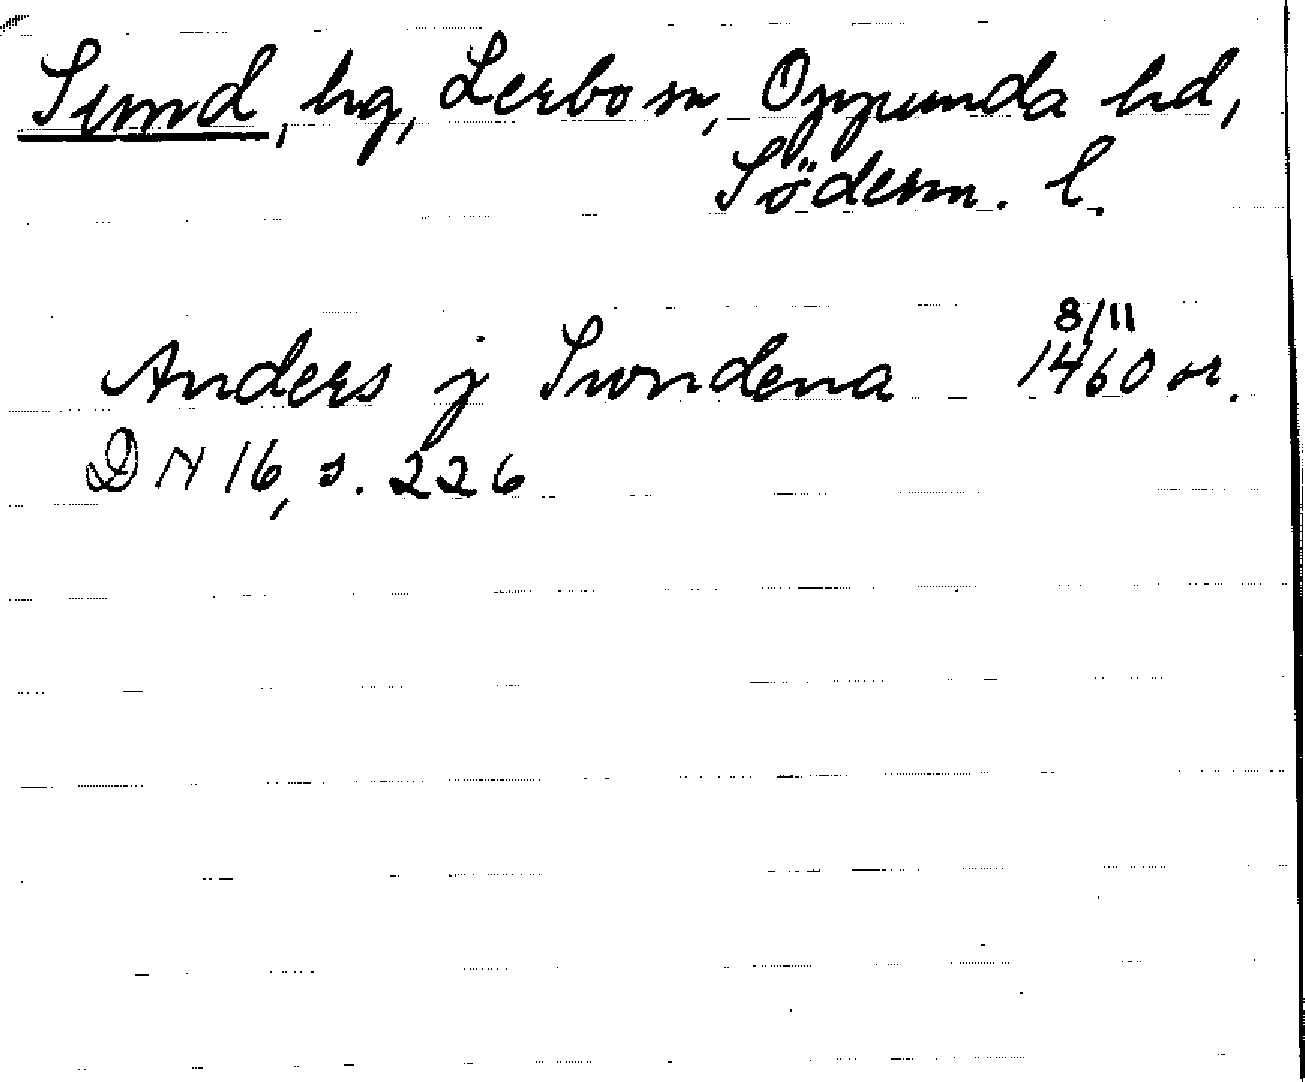 Sund, hg, Lerbo sn, Oppunda hd,
Söderm. l.
8/11
Anders j Swndena 1460 or.
DN 16, s. 226